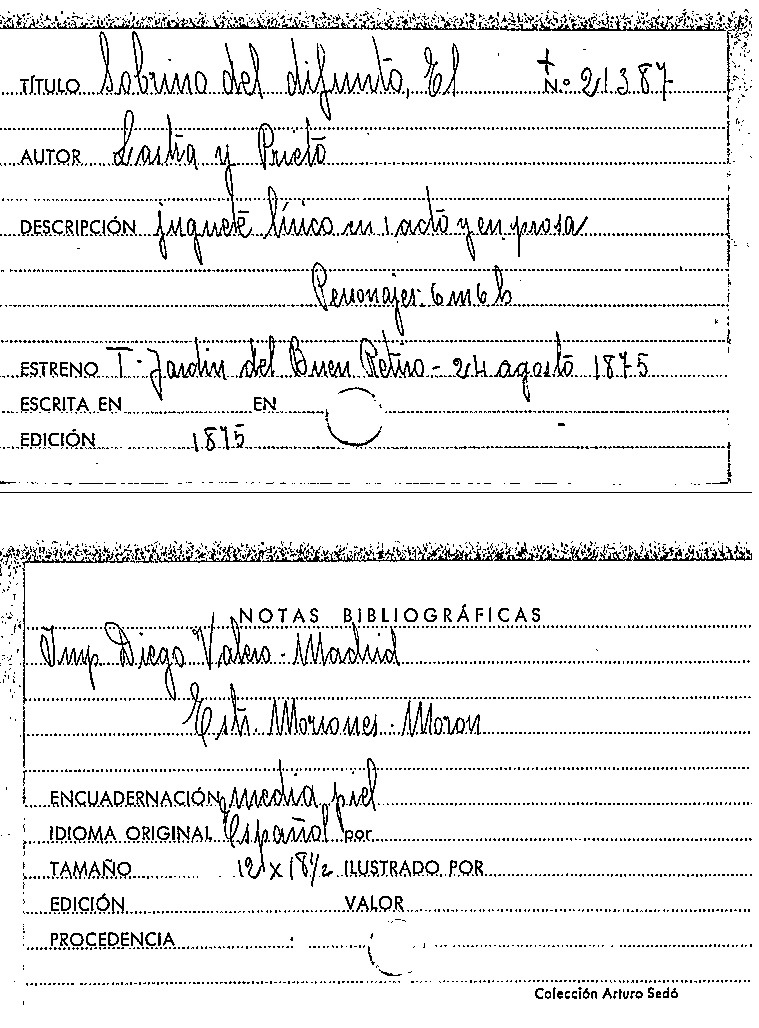 TÍTULO Sobrino del difunto, El + N.º 21387
AUTOR Lastra y Prieto
DESCRIPCIÓN juguete lírico en 1 acto y en prosa
Personajes: 6 m 6 h
ESTRENO T. Jardin del Buen Retiro - 24 agosto 1875
ESCRITA EN EN
EDICIÓN 1875
NOTAS BIBLIOGRÁFICAS
Imp Diego Valero - Madrid
Estr. Moriones - Moron
ENCUADERNACIÓN media piel
IDIOMA ORIGINAL Español por
TAMAÑO 12 x 18½ ILUSTRADO POR
EDICIÓN VALOR
PROCEDENCIA
Colección Arturo Sedó